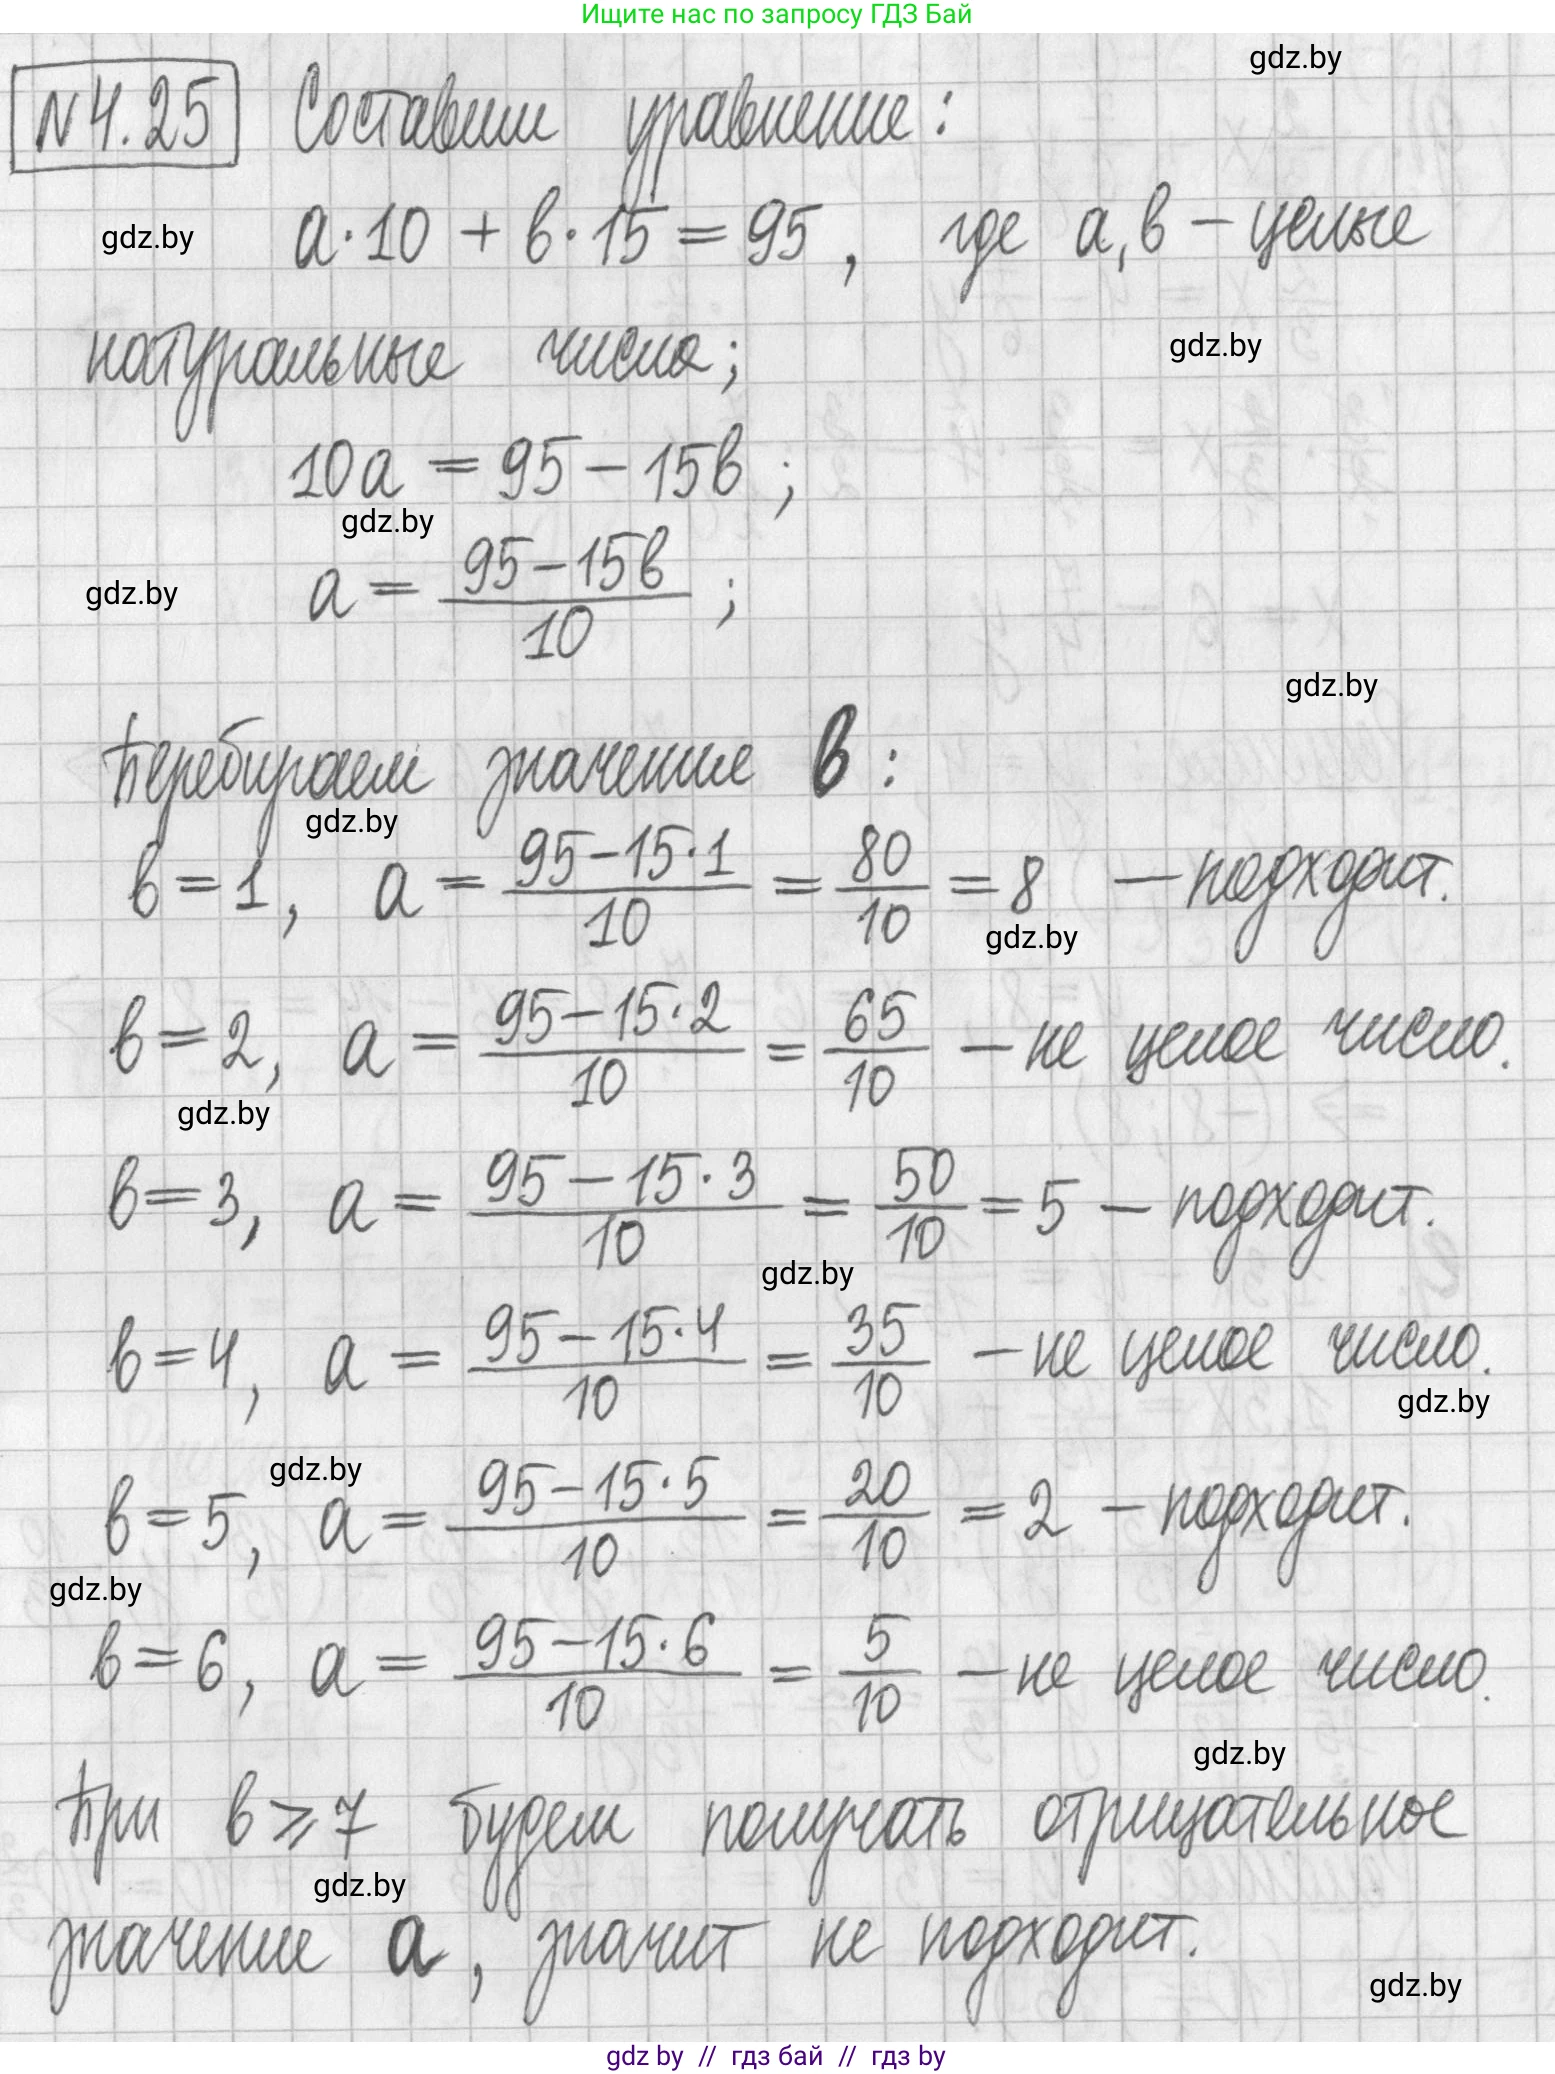 Ищите нас по запросу ГДЗ Бай
gdz.by
N 4.25 Составим уравнение:
gdz.by
a·10 + b·15 = 95, где a, b – целые
натуральные числа;
gdz.by
10a = 95 – 15b;
gdz.by
a = (95 – 15b)/10;
gdz.by
gdz.by
Перебираем значение b:
gdz.by
b = 1, a = (95 – 15·1)/10 = 80/10 = 8 – подходит.
gdz.by
b = 2, a = (95 – 15·2)/10 = 65/10 – не целое число.
gdz.by
b = 3, a = (95 – 15·3)/10 = 50/10 = 5 – подходит.
gdz.by
b = 4, a = (95 – 15·4)/10 = 35/10 – не целое число.
gdz.by
gdz.by
b = 5, a = (95 – 15·5)/10 = 20/10 = 2 – подходит.
gdz.by
b = 6, a = (95 – 15·6)/10 = 5/10 – не целое число.
gdz.by
При b ⩾ 7 будем получать отрицательное
gdz.by
значение a, значит не подходит.
gdz.by
gdz by // гдз бай // гдз by